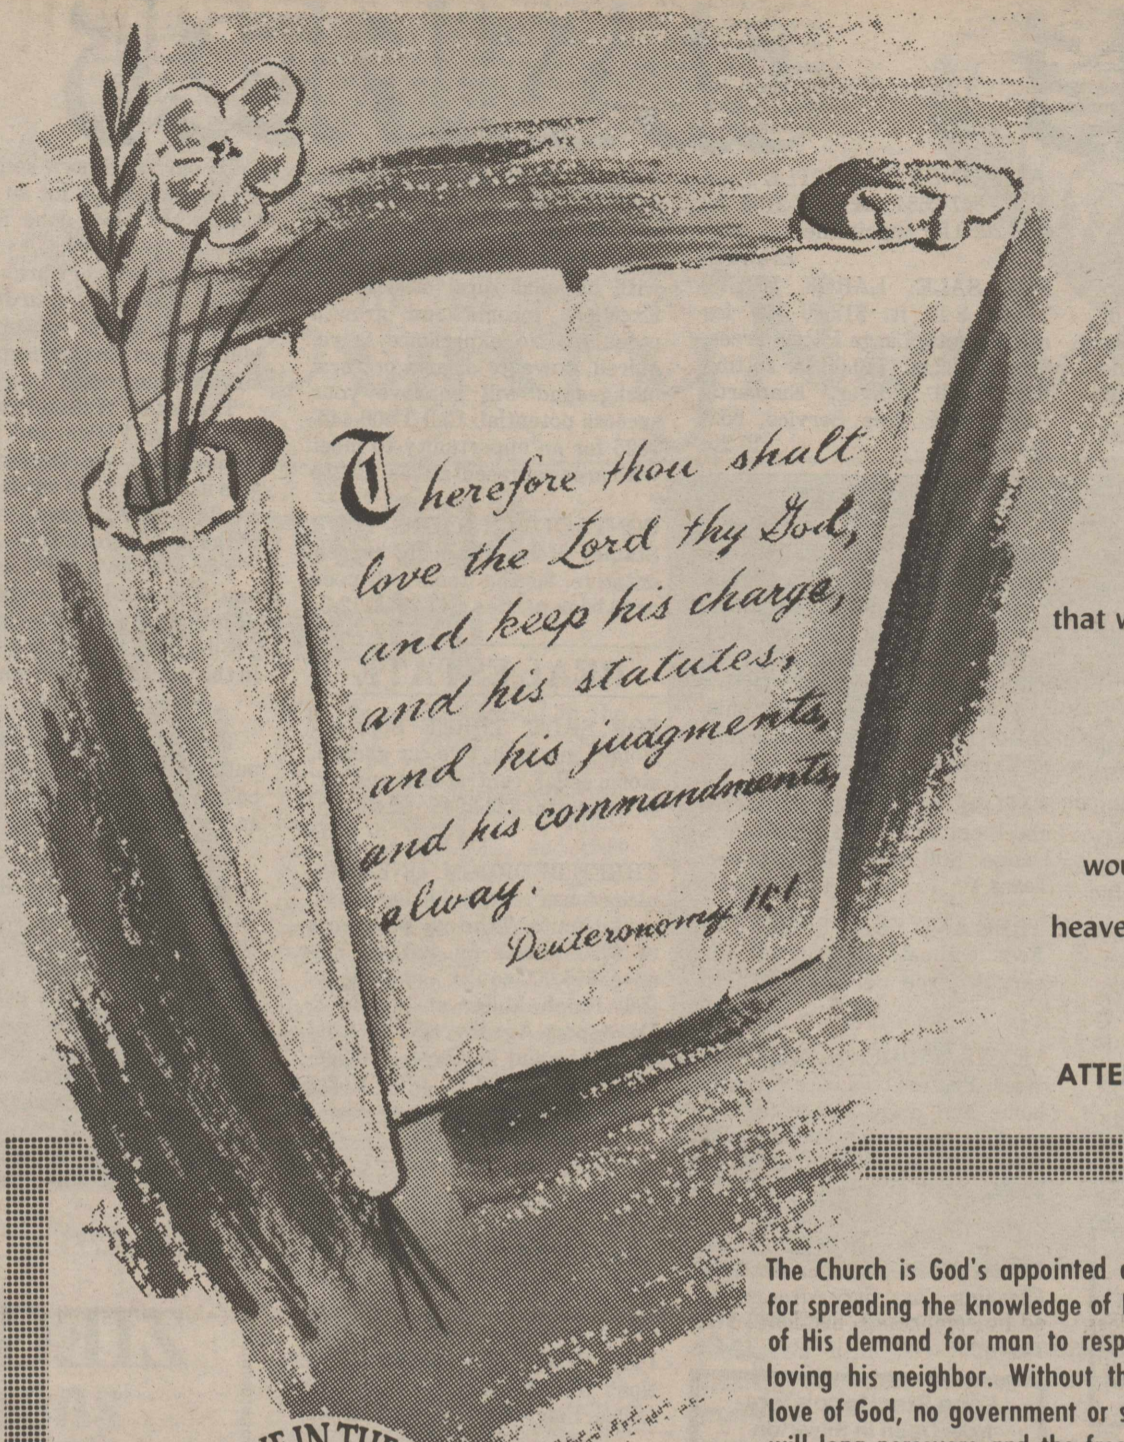 Therefore thou shalt
love the Lord thy God,
and keep his charge,
and his statutes,
and his judgments,
and his commandments,
alway.
Deuteronomy 11:1
that
wou
heave
ATTE
The Church is God's appointed
for spreading the knowledge of
of His demand for man to resp
loving his neighbor. Without th
love of God, no government or s
IN THE